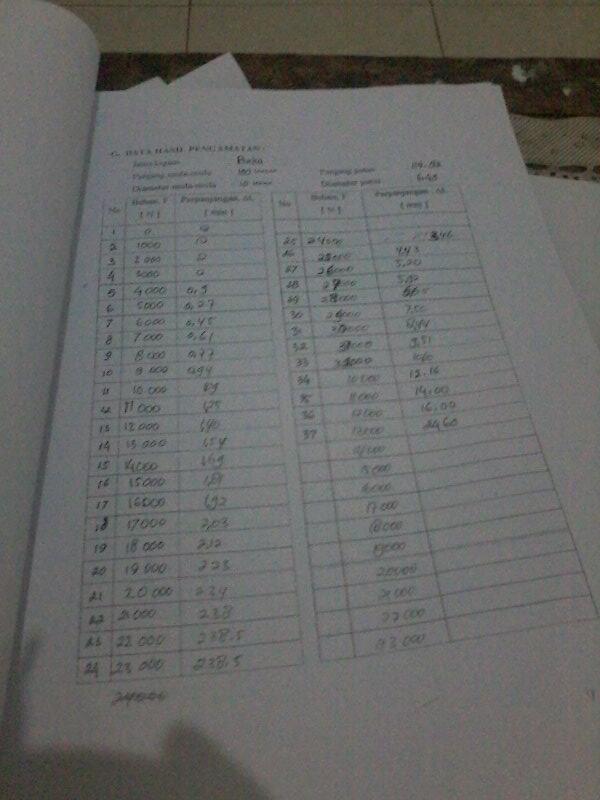 G. DATA HASIL PENGAMATAN :
Jenis logam Baja
Panjang mula-mula 100
Diameter mula-mula 10
Panjang putus
Diameter putus 6.40
No Beban, F Perpanjangan, ΔL
[ N ] [ mm ]
1 0 0
2 1000 0
3 2000 0
4 3000 0
5 4000 0,9
6 5000 0,27
7 6000 0,45
8 7000 0,61
9 8000 0,77
10 9000 0,94
11 10 000
12 11 000 1,25
13 12000 1,40
14 13 000 1,54
15 14000 1,69
16 15000 1,81
17 16000 1,92
18 17000 2,03
19 18 000 2,12
20 19 000 2 23
21 20 000 2 34
22 21 000 2 38
23 22 000 2 38,5
24 23 000 2 38,5
24000
No Beban, F Perpanjangan, ΔL
[ N ] [ mm ]
25 24000
26 25000 4,43
27 26000 5,20
28 27000
29 28000
30 29000 7,50
31 30000
32 31000 9,51
33 32000
34 10 000 12.16
35 11 000 14.00
36 12 000 16.00
37 13000 24,60
14 000
15 000
16000
17 000
18 000
19000
20000
21 000
22 000
23 000